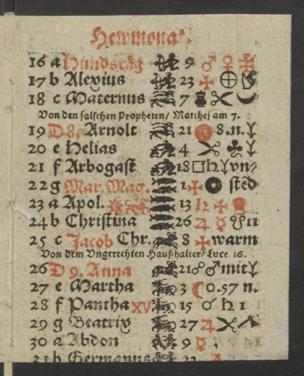 Hewmonat.
16 a Hundstäg 9 ♂ ♀
17 b Alexius 23 ⊕
18 c Maternus 7
Von den falschen Propheten/ Matthei am 7.
19 D 8. Arnolt 21 8.n.
20 e Helias 4
21 f Arbogast 18 □ ♄ vn-
22 g Mar. Mag. sted
23 a Apol. 13 ♄
24 b Christina 26 ♃ ☿ 11
25 c Jacob Chr. 8 warm
Von dem Vngerechten Haußhalter/ Luce 16.
26 D 9. Anna 21 ☍ ♂ mit
27 e Martha 3 ☾ 0.57 n.
28 f Pantha XV 15 ♂ ♄ 1
29 g Beatrix 27 ♃
30 a Abdon 9
31 b Germanus